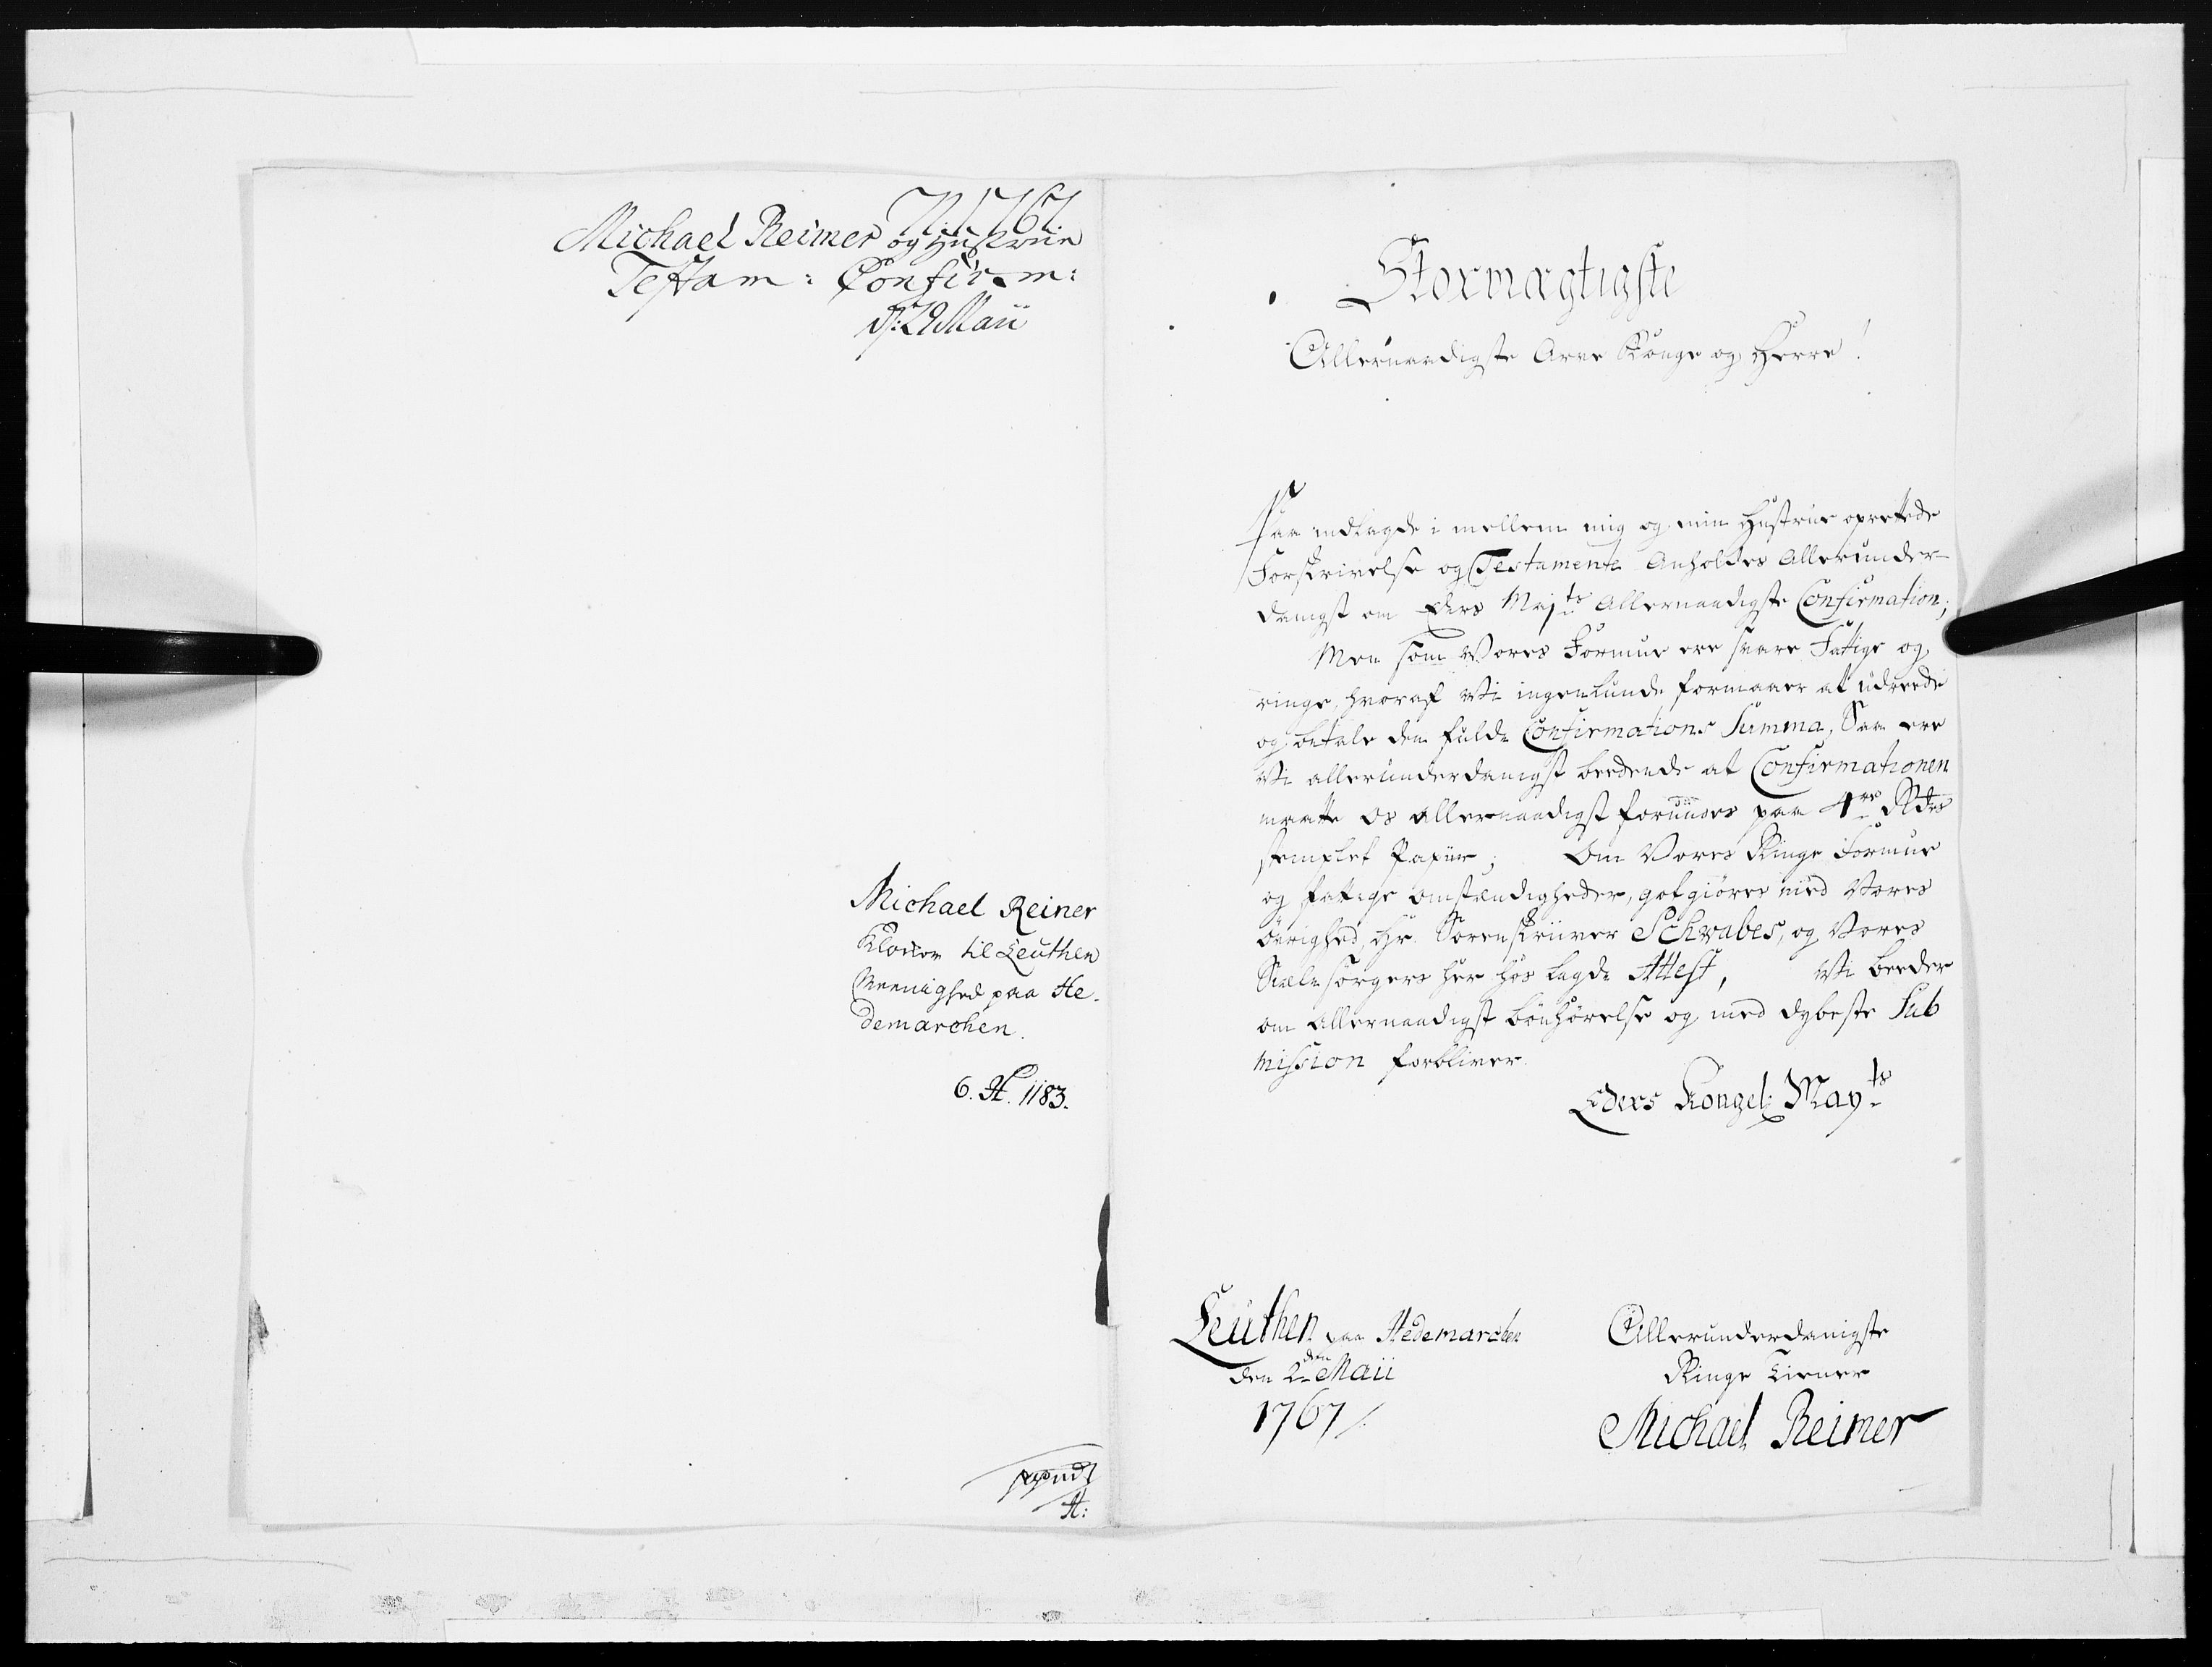 N. 1767.
Michael Reimer og Hustrue
Testam: Confirm:
d: 29 Maii
Michael Reiner
Klocker til Leuthen
Meenighed paa He-
demarchen.
6. H. 1183.
H:
Stormægtigste
Allernaadigste Arve Konge og Herre!
Paa indlagde i mellem mig og min Hustrue oprettede
Forskrivelse og Testamente Anholdes Allerunder-
danigst om Eders Majts Allernaadigste Confirmation;
Men som Vores Formue ere svare Fattige og
ringe, hvoraf Vi ingenlunde formaaer at udreede
og betale den fulde Confirmations Summa, Saa ere
Vi allerunderdanigst beedende at Confirmationen
maatte os allernaadigst forundes paa 4re Rdrs
stemplet Papiir; Om Vores Ringe Formue
og fattige omstændigheder, gotgiøres med Vores
Øvrighed, Hr. Sorenskriiver Schwabes, og Vores
Siæle sørgers her hos lagde Attest, Vi beeder
om allernaadigst bønhørelse og med dybeste Sub
mission forbliver
Eders Kongel: Mayts
Leuthen paa Hedemarchen
den 2den Maii
1767/.
Allerunderdanigste
Ringe Tiener
Michael Reimer